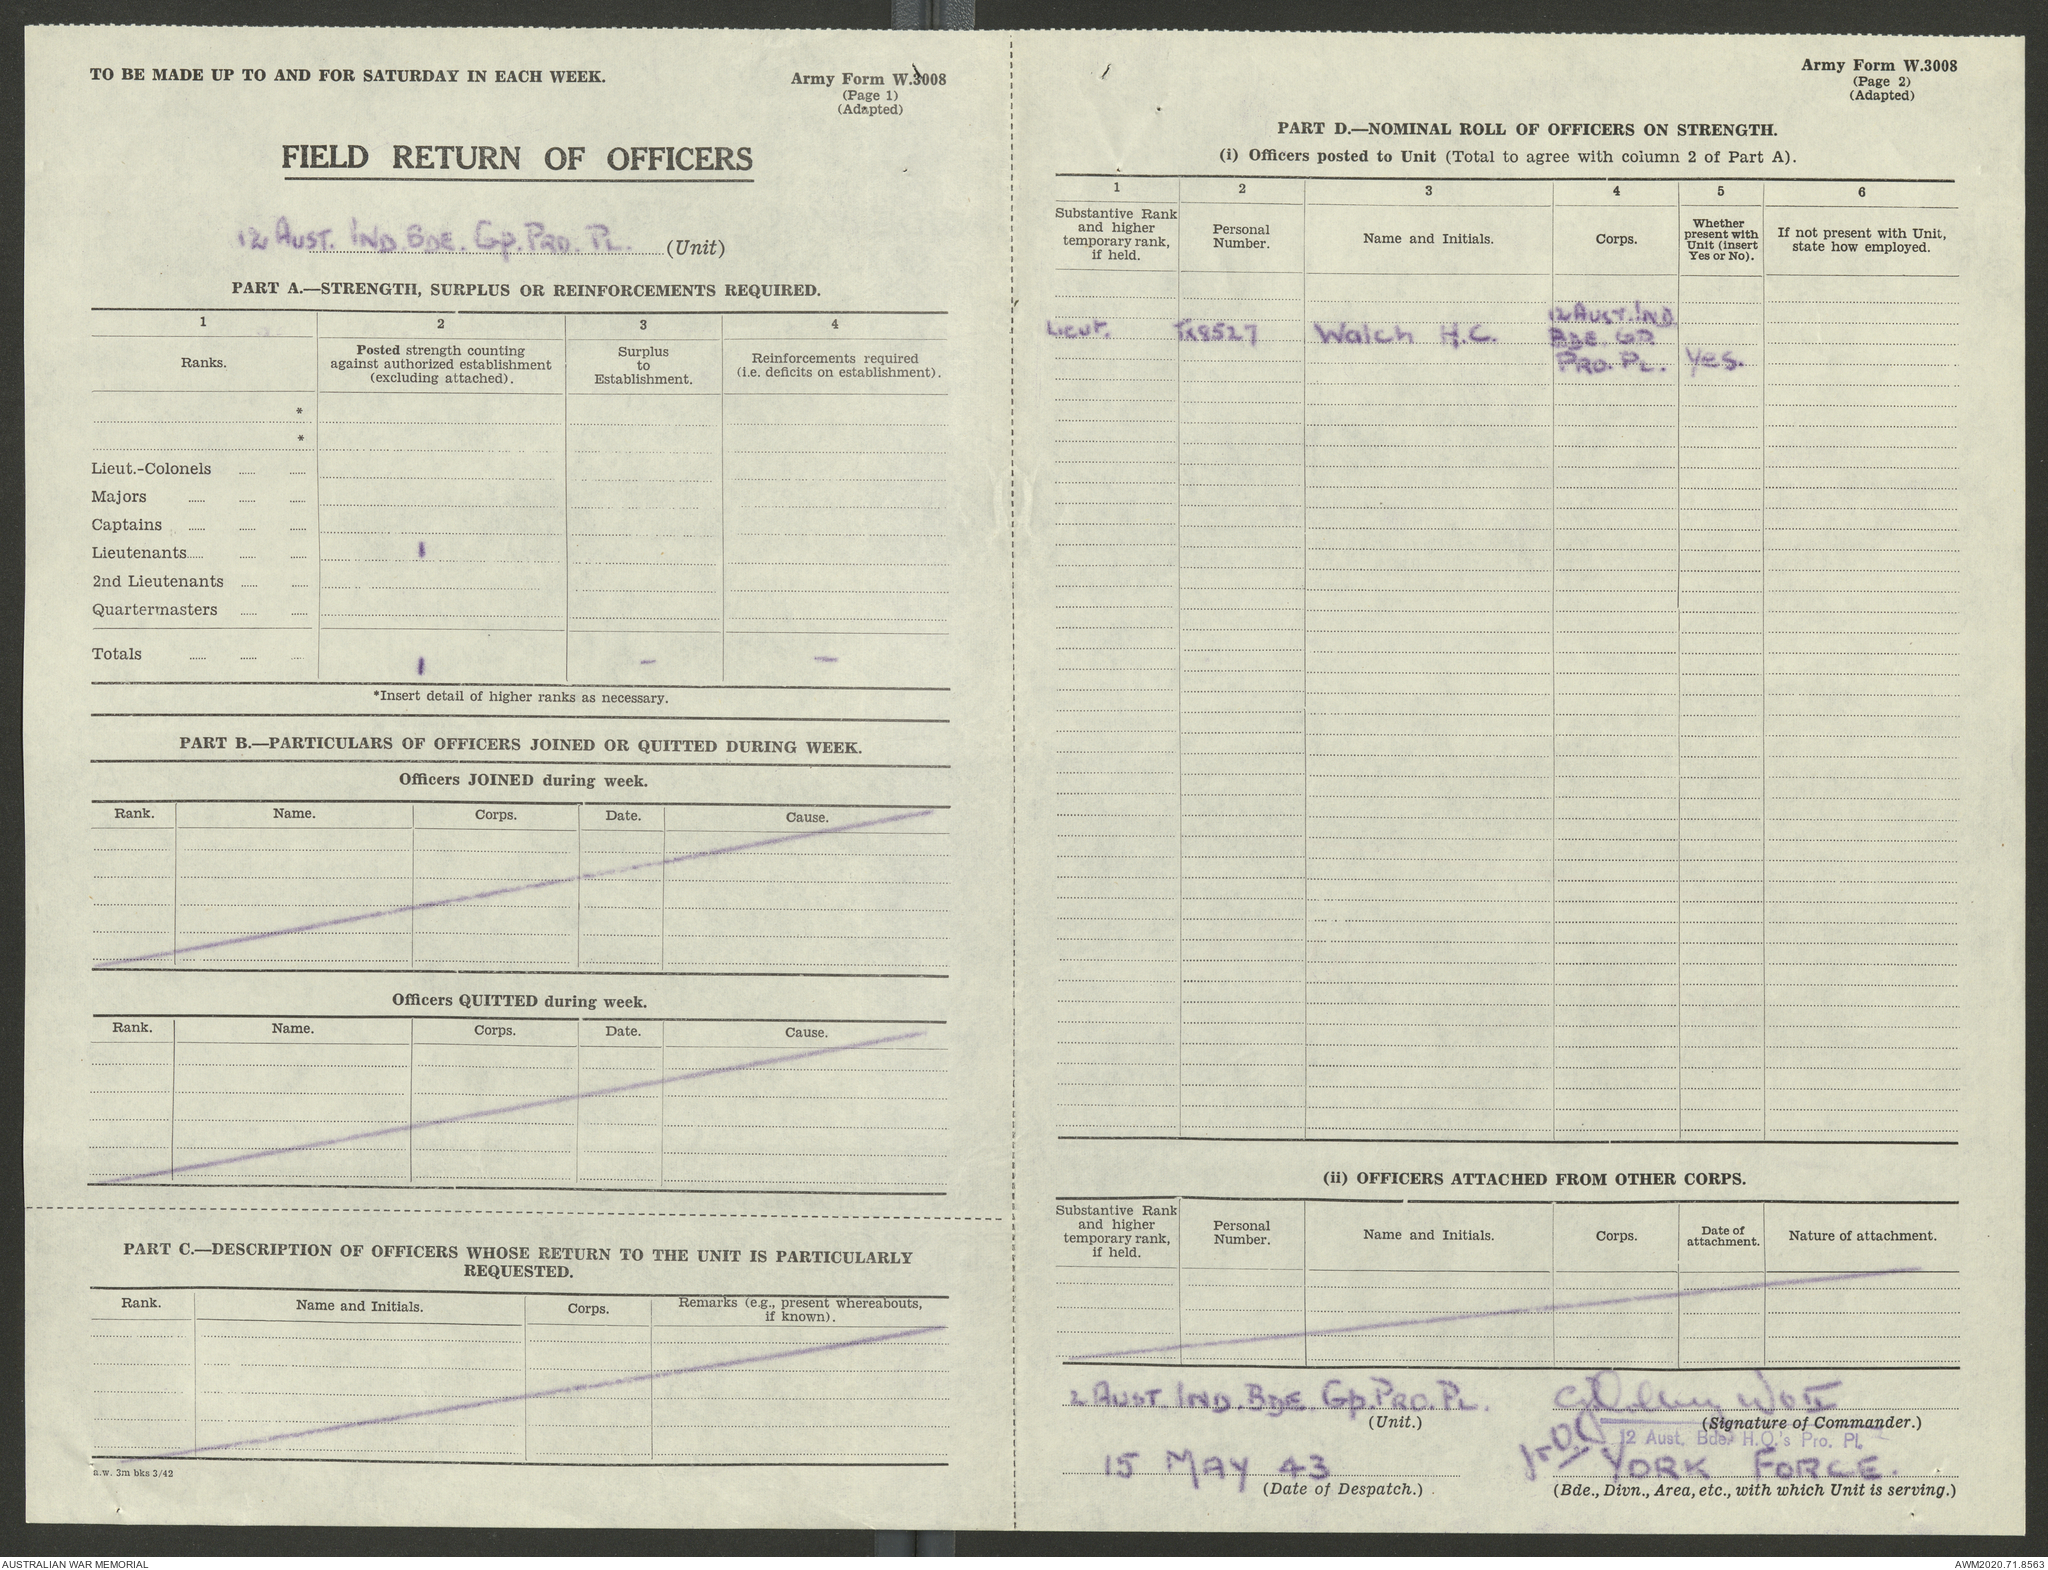 TO BE MADE UP TO AND FOR SATURDAY IN EACH WEEK.
Army Form W.3008
(Page 1)
(Adapted)
FIELD RETURN OF OFFICERS
12 AUST. IND. BDE. GP. PRO. PL. (Unit)
PART A.—STRENGTH, SURPLUS OR REINFORCEMENTS REQUIRED.
1 2 3 4
Ranks.
Posted strength counting
against authorized establishment
(excluding attached).
Surplus
to
Establishment.
Reinforcements required
(i.e. deficits on establishment).
*
*
Lieut.-Colonels
Majors
Captains
Lieutenants 1
2nd Lieutenants
Quartermasters
Totals 1 – –
*Insert detail of higher ranks as necessary.
PART B.—PARTICULARS OF OFFICERS JOINED OR QUITTED DURING WEEK.
Officers JOINED during week.
Rank. Name. Corps. Date. Cause.
Officers QUITTED during week.
Rank. Name. Corps. Date. Cause.
PART C.—DESCRIPTION OF OFFICERS WHOSE RETURN TO THE UNIT IS PARTICULARLY
REQUESTED.
Rank. Name and Initials. Corps.
Remarks (e.g., present whereabouts,
if known).
a.w. 3m bks 3/42
Army Form W.3008
(Page 2)
(Adapted)
PART D.—NOMINAL ROLL OF OFFICERS ON STRENGTH.
(i) Officers posted to Unit (Total to agree with column 2 of Part A).
1 2 3 4 5 6
Substantive Rank
and higher
temporary rank,
if held.
Personal
Number.
Name and Initials.
Corps.
Whether
present with
Unit (insert
Yes or No).
If not present with Unit,
state how employed.
Lieut. TX8527 Walch H.C.
12 AUST. IND
BDE. GP
PRO. PL. Yes.
(ii) OFFICERS ATTACHED FROM OTHER CORPS.
Substantive Rank
and higher
temporary rank,
if held.
Personal
Number.
Name and Initials.
Corps.
Date of
attachment.
Nature of attachment.
2 AUST. IND. BDE. GP. PRO. PL.
(Unit.)
WO II
(Signature of Commander.)
12 Aust. Bde. H.Q.'s Pro. Pl.
15 MAY 43
(Date of Despatch.)
YORK FORCE.
(Bde., Divn., Area, etc., with which Unit is serving.)
AUSTRALIAN WAR MEMORIAL
AWM2020.71.8563